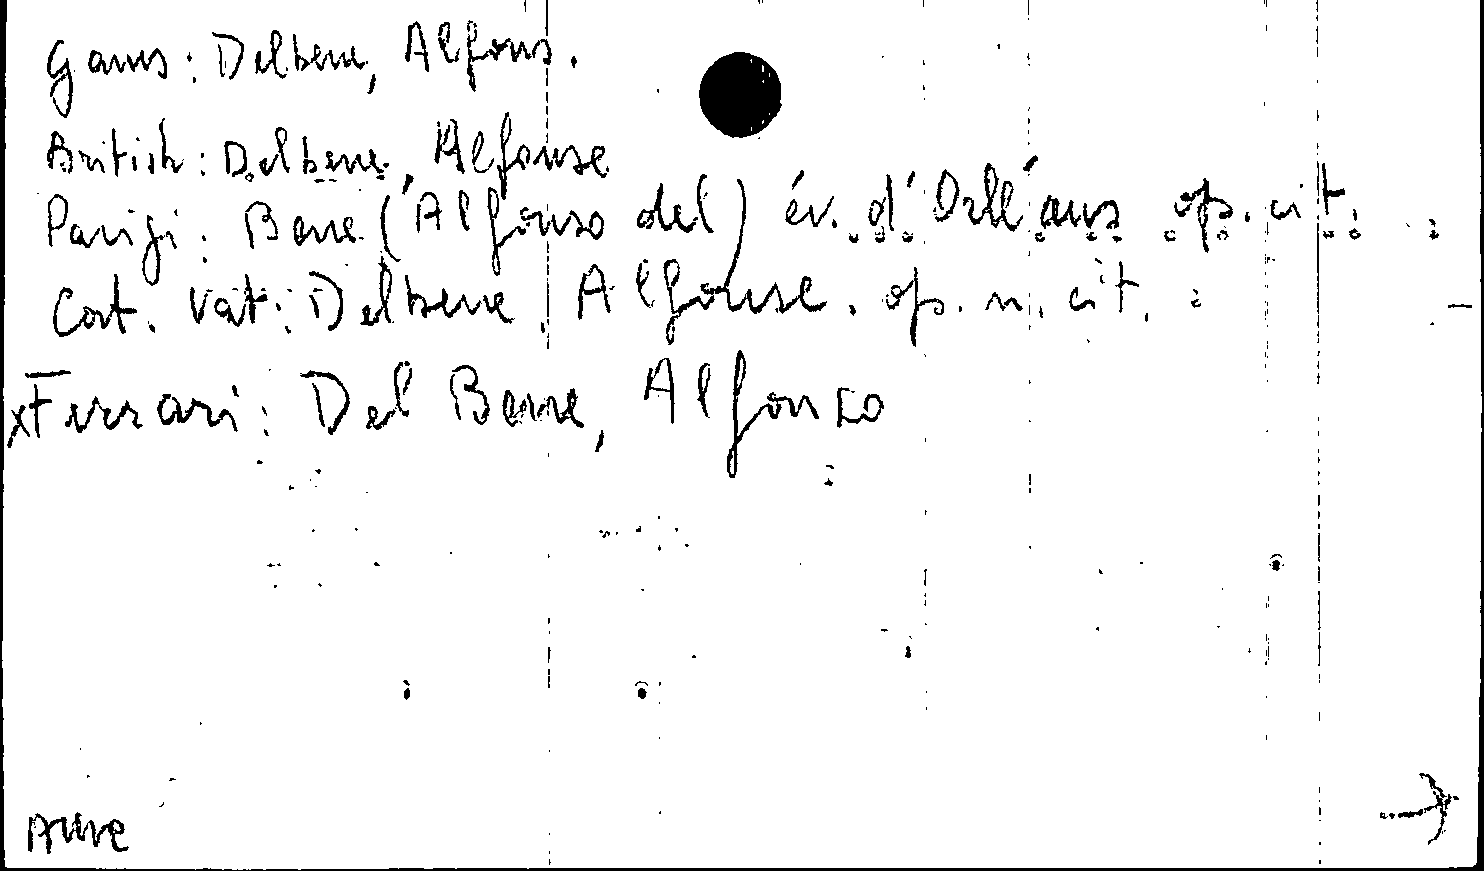 Gams: Delbene, Alfons.
British: Delbene, Alfonse
Parigi: Bene (Alfonso del) év. d'Orléans op. cit.
Cat. Vat: Delbene, Alfonse. op. n. cit.
xFerrari: Del Bene, Alfonso